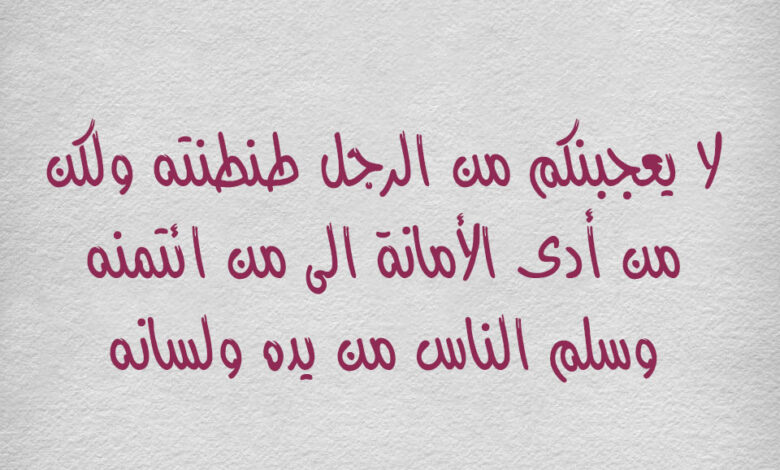 لا يعجبنكم من الرجل طنطنته ولكن
من أدى الأمانة الى من ائتمنه
وسلم الناس من يده ولسانه